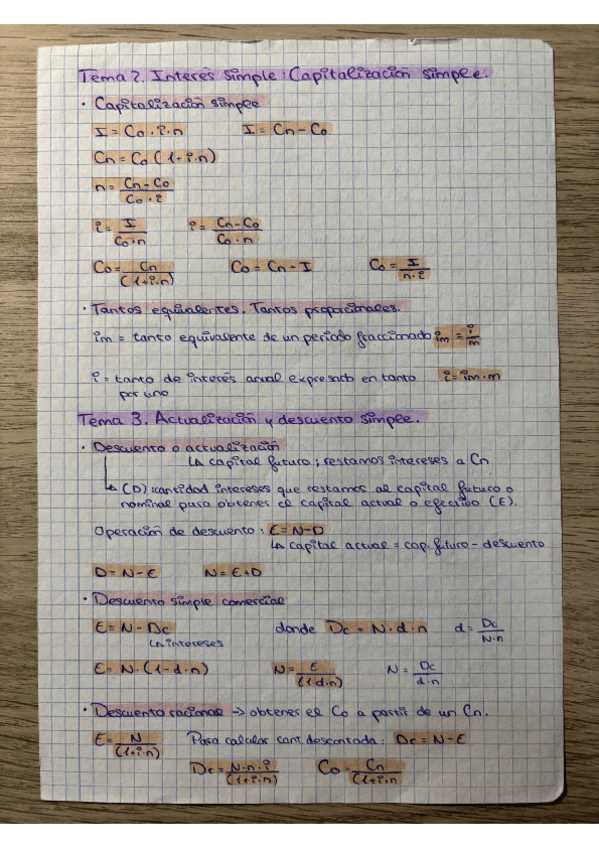 Tema 2. Interés simple: Capitalización simple.
· Capitalización simple
I = C₀ · i · n    I = Cn - C₀
Cn = C₀ (1 + i · n)
n = (Cn - C₀) / (C₀ · i)
i = I / (C₀ · n)    i = (Cn - C₀) / (C₀ · n)
C₀ = Cn / (1 + i · n)    C₀ = Cn - I    C₀ = I / (n · i)
· Tantos equivalentes. Tantos proporcionales.
im = tanto equivalente de un periodo fraccionado im = i / m
i = tanto de interés anual expresado en tanto    i = im · m
por uno
Tema 3. Actualización y descuento simple.
· Descuento o actualización
↳ capital futuro ; restamos intereses a Cn
↳ (D) : cantidad intereses que restamos al capital futuro o
nominal para obtener el capital actual o efectivo (E).
Operación de descuento : E = N - D
↳ capital actual = cap. futuro - descuento
D = N - E    N = E + D
· Descuento simple comercial
E = N - Dc    donde Dc = N · d · n    d = Dc / (N · n)
↳ intereses
E = N · (1 - d · n)    N = E / (1 · d · n)    N = Dc / (d · n)
· Descuento racional → obtener el C₀ a partir de un Cn.
E = N / (1 + i · n)    Para calcular cant. descontada : Dc = N - E
Dc = (N · n · i) / (1 + i · n)    C₀ = Cn / (1 + i · n